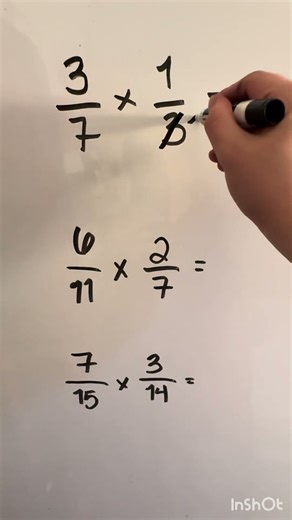 3/7 × 1/3
6/11 × 2/7 =
7/15 × 3/14 =
InShOt